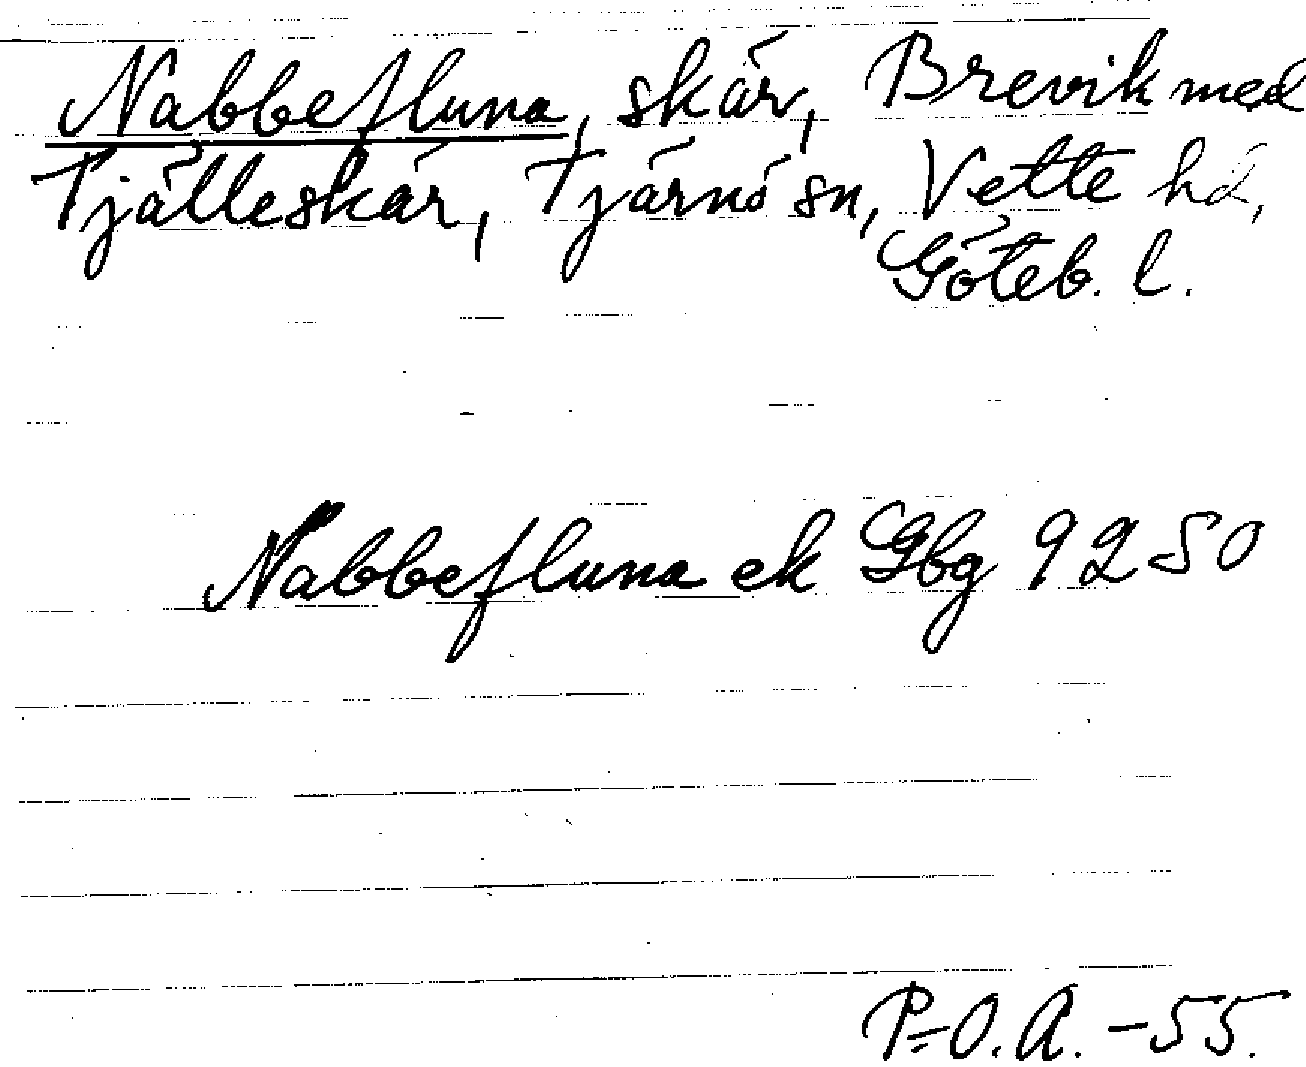 Nabbefluna, skär, Brevik med
Tjälleskär, Tjärnö sn, Vette hd,
Göteb. l.
Nabbefluna ek Gbg 9250
P=O.A. -55.